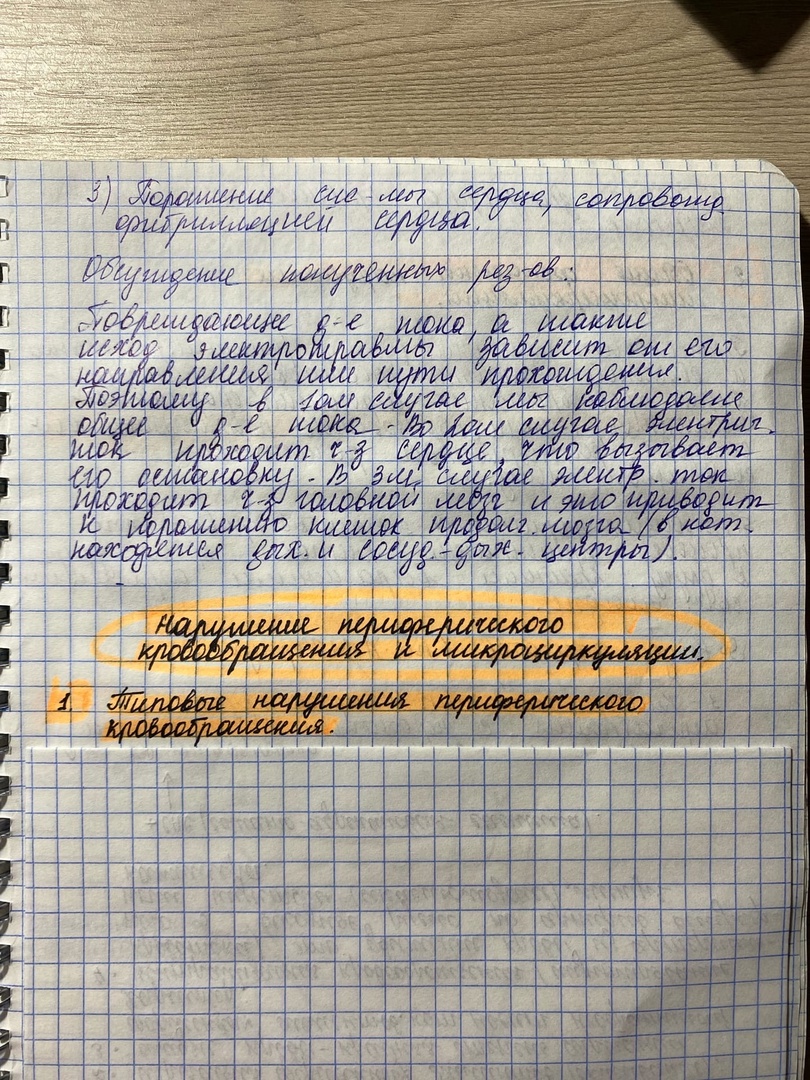 3) Порашение сис-мы сердца, сопровожд.
фибрилляцией сердца.
Обсуждение полученных рез-ов:
Повреждающее д-е тока, а также
исход электротравмы зависит от его
направления или пути прохождения.
Поэтому в 1ом случае мы наблюдали
общее д-е тока. Во 2ом случае электрич.
ток проходит ч-з сердце, что вызывает
его остановку. В 3м случае электр. ток
проходит ч-з головной мозг и это приводит
к порашению клеток продолг. мозга (в кот.
находятся дых. и сосуд.-дых. центры).
Нарушение периферического
кровообращения и микроциркуляции.
1. Типовые нарушения периферического
кровообращения.